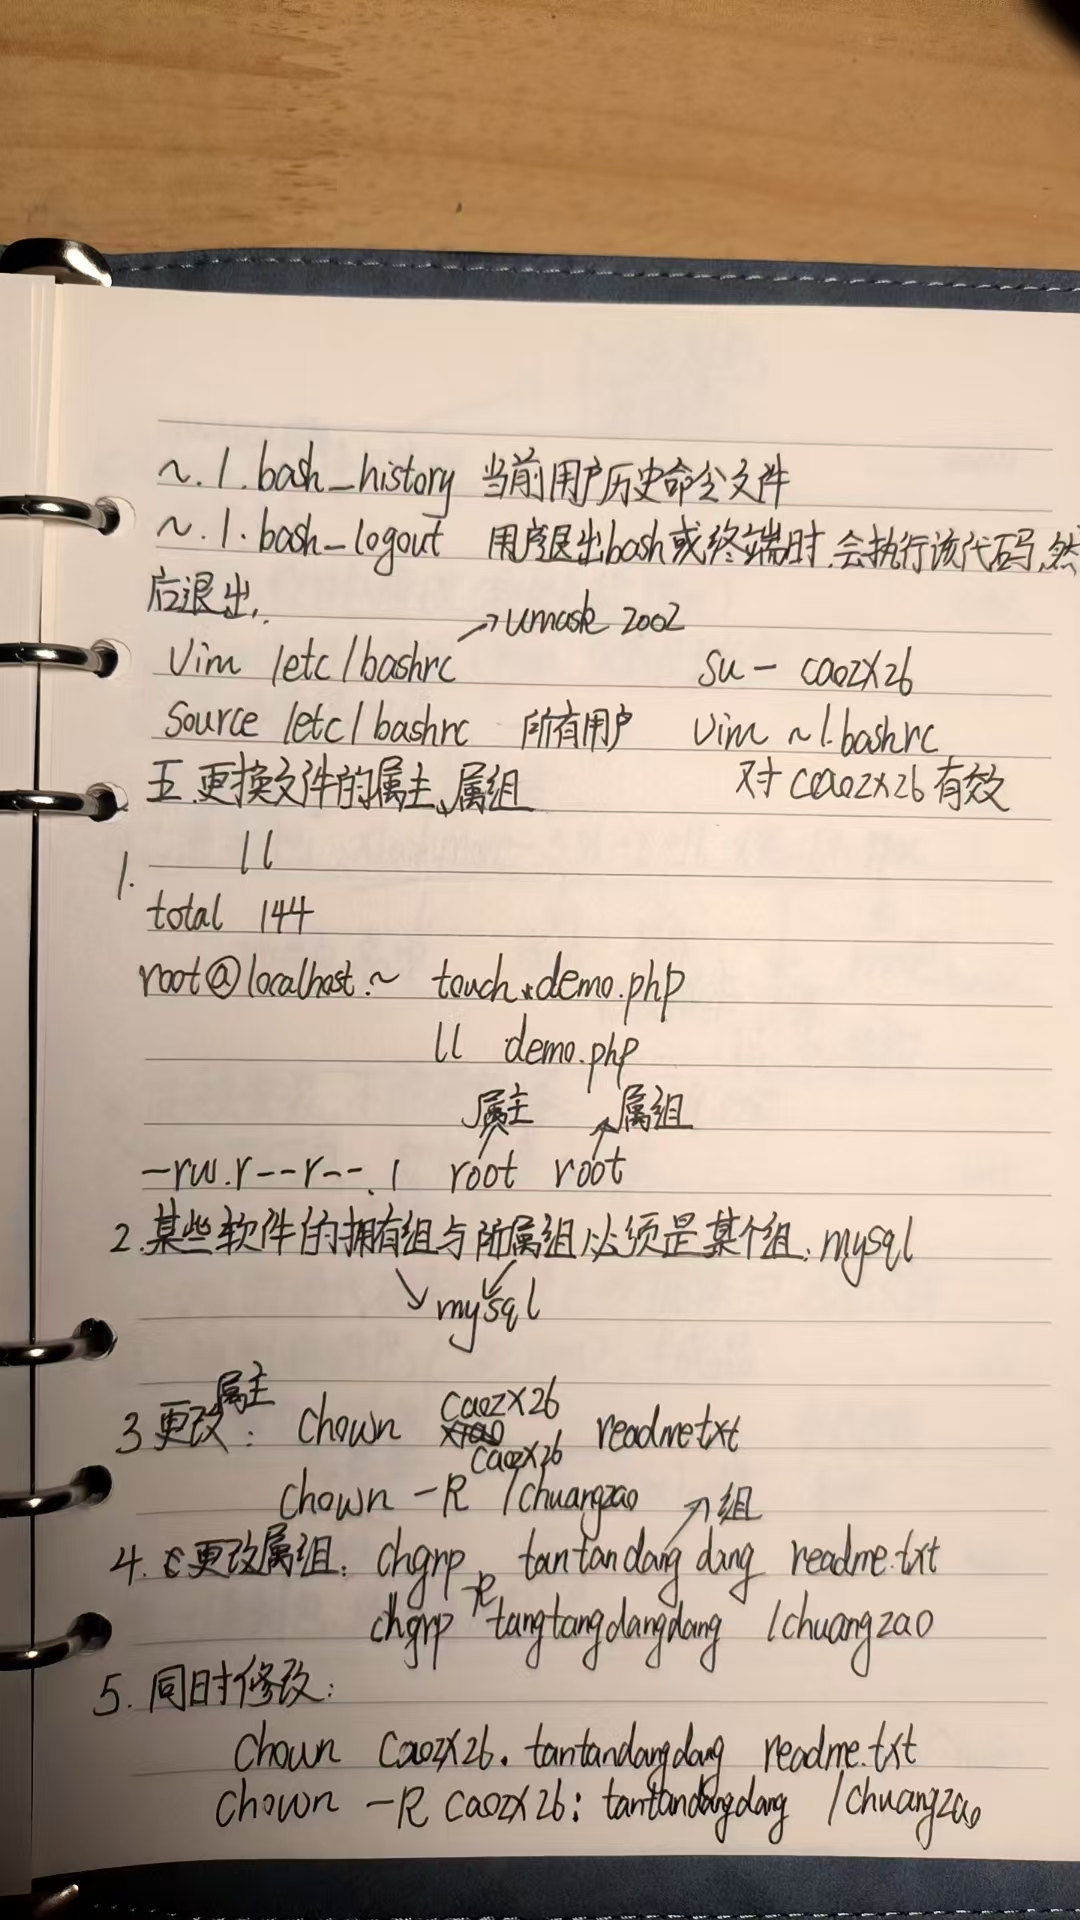 ~./.bash_history 当前用户历史命令文件
~./.bash_logout 用户退出bash或终端时.会执行该代码,然
后退出.
→umask 2002
Vim /etc/bashrc su - caozx26
Source /etc/bashrc 所有用户 Vim ~/.bashrc
五.更换文件的属主、属组 对caozx26有效
1. ll
total 144
root@localhost:~ touch demo.php
ll demo.php
属主 属组
-rw.r--r--. 1 root root
2.某些软件的拥有组与附属组必须是某个组: mysql
mysql
3更改属主: chown caozx26 readmetxt
chown -R caozx26 /chuangzao
→组
4. 更改属组: chgrp tantandangdang readme.txt
chgrp -R tangtangdangdang /chuangzao
5. 同时修改:
chown caozx26. tantandangdang readme.txt
chown -R caozx26: tantandangdang /chuangzao